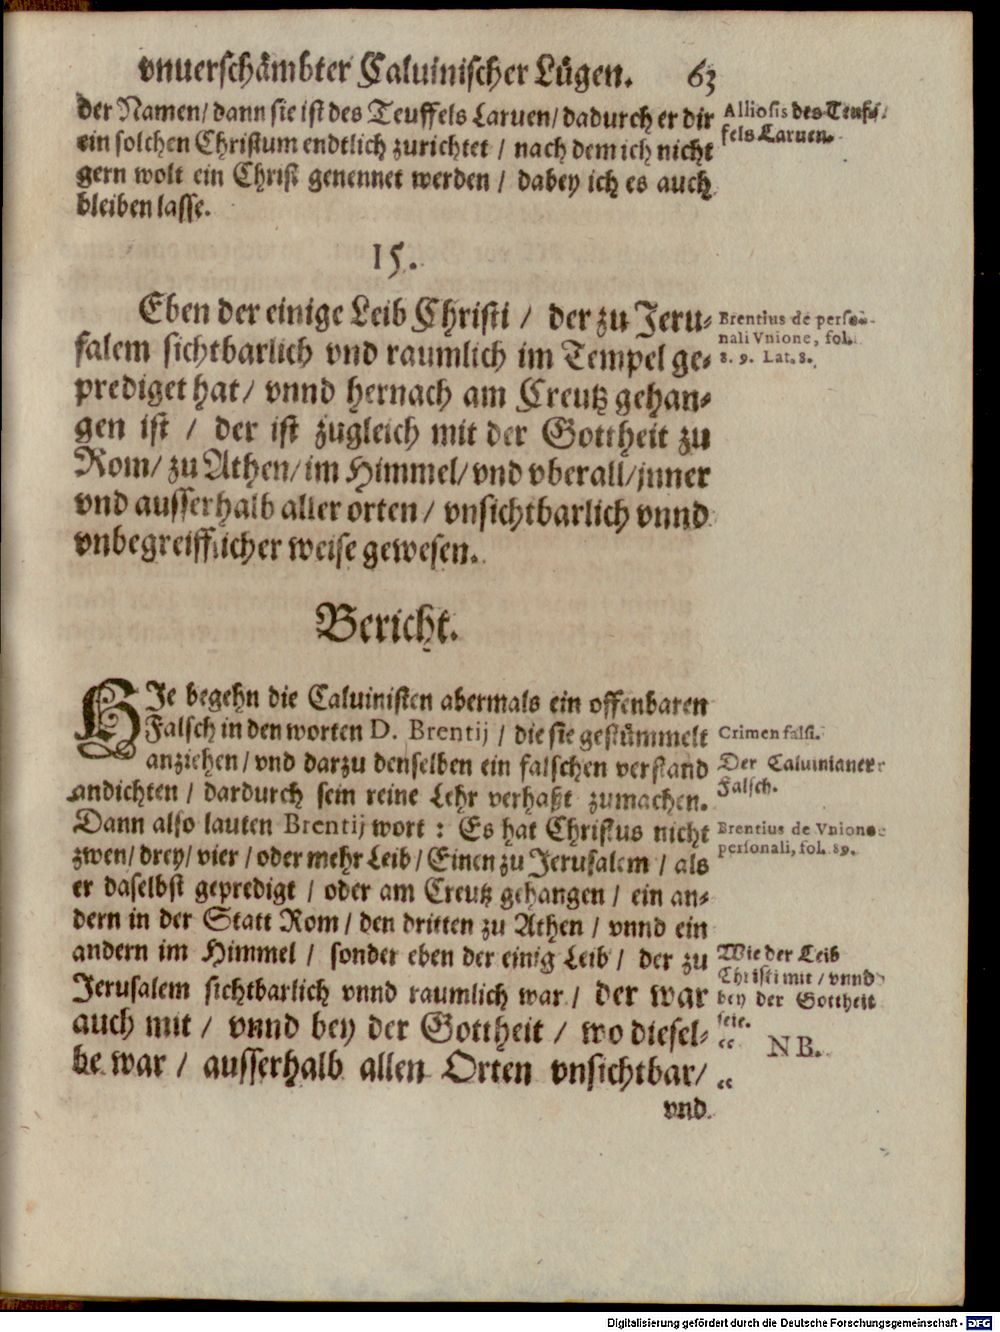 vnuerschämbter Caluinischer Lügen. 63
der Namen/ dann sie ist des Teuffels Laruen/ dadurch er dir
ein solchen Christum endtlich zurichtet / nach dem ich nicht
gern wolt ein Christ genennet werden / dabey ich es auch
bleiben lasse.
Alliosis des Teuf-
fels Laruen.
15.
Eben der einige Leib Christi / der zu Jeru-
salem sichtbarlich vnd raumlich im Tempel ge-
prediget hat/ vnnd hernach am Creutz gehan-
gen ist / der ist zugleich mit der Gottheit zu
Rom/ zu Athen/ im Himmel/ vnd vberall/ jnner
vnd ausserhalb aller orten / vnsichtbarlich vnnd
vnbegreifflicher weise gewesen.
Brentius de perso-
nali Vnione, fol.
8. 9. Lat. 8.
Bericht.
HIe begehn die Caluinisten abermals ein offenbaren
Falsch in den worten D. Brentij / die sie gestümmelt
anziehen/ vnd darzu denselben ein falschen verstand
andichten / dardurch sein reine Lehr verhaßt zumachen.
Dann also lauten Brentij wort : Es hat Christus nicht
zwen/ drey/ vier / oder mehr Leib/ Einen zu Jerusalem / als
er daselbst gepredigt / oder am Creutz gehangen / ein an-
dern in der Statt Rom / den dritten zu Athen / vnnd ein
andern im Himmel / sonder eben der einig Leib / der zu
Jerusalem sichtbarlich vnnd raumlich war / der war
auch mit / vnnd bey der Gottheit / wo diesel-
be war / ausserhalb allen Orten vnsichtbar/
vnd
Crimen falsi.
Der Caluinianer
Falsch.
Brentius de Vnione
personali, fol. 89.
Wie der Leib
Christi mit / vnnd
bey der Gottheit
seie.
“ NB.
“
Digitalisierung gefördert durch die Deutsche Forschungsgemeinschaft - DFG